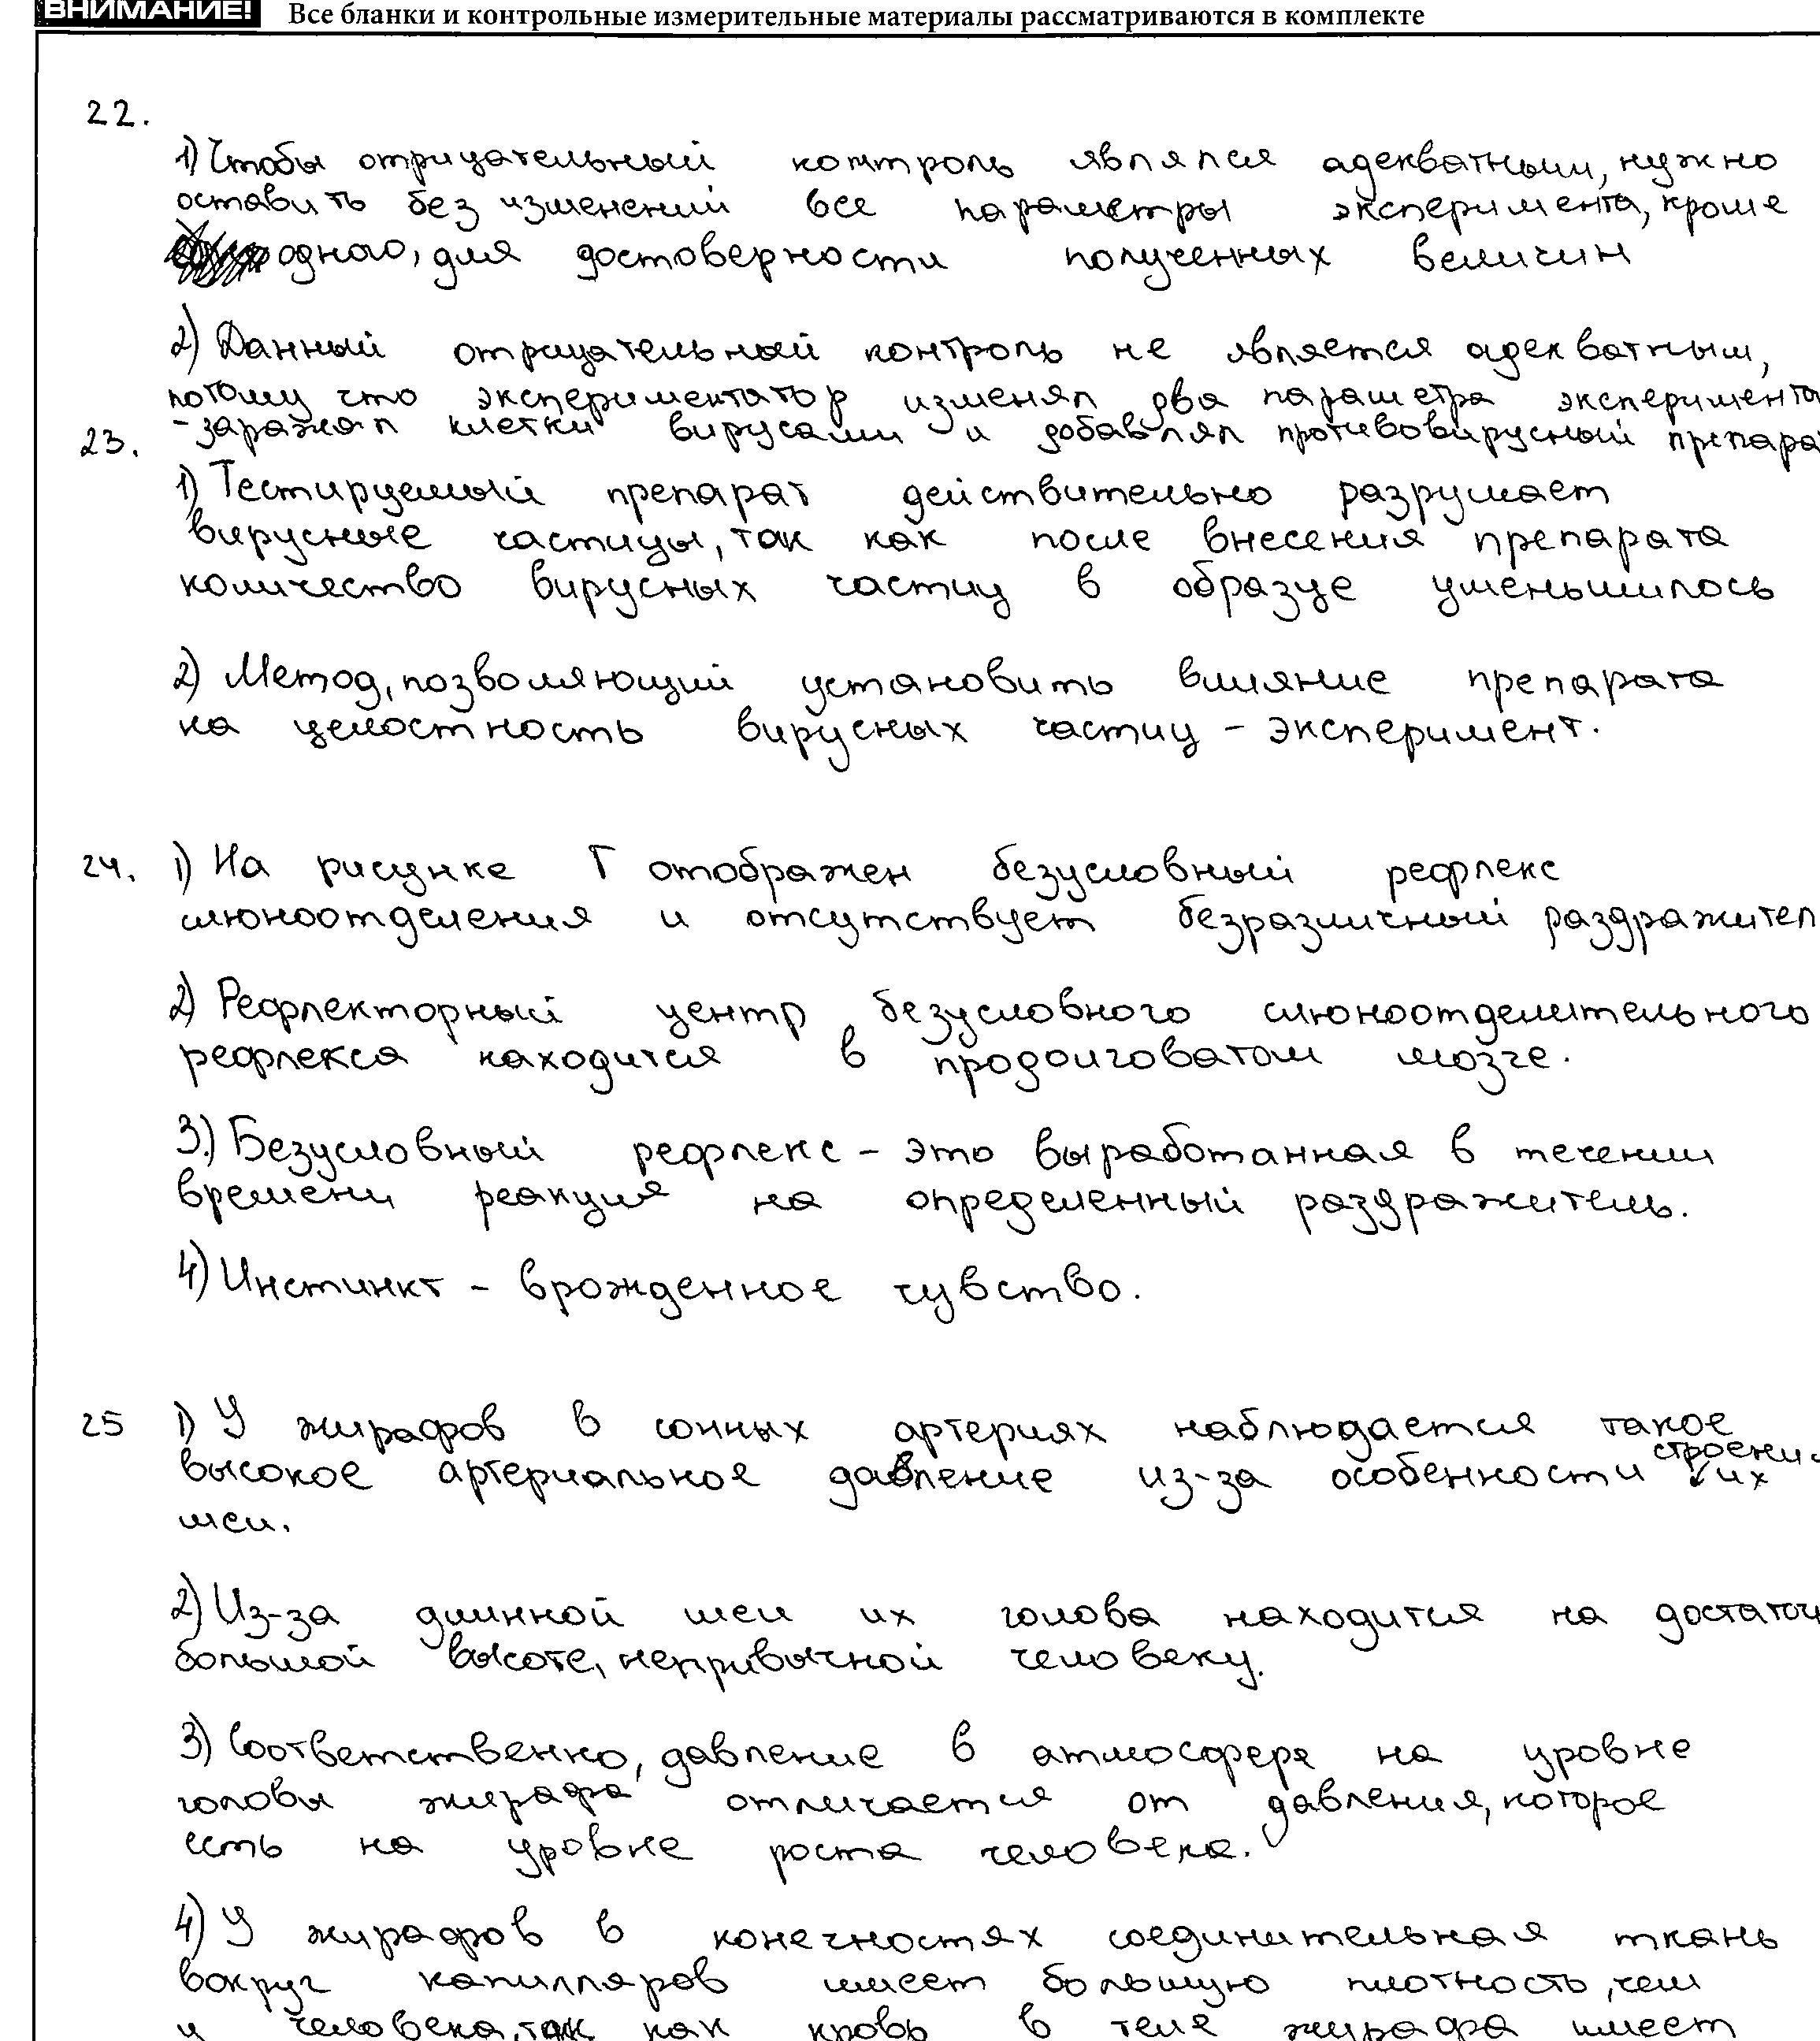 ВНИМАНИЕ! Все бланки и контрольные измерительные материалы рассматриваются в комплекте
22.
1) Чтобы отрицательный контроль являлся адекватным, нужно
оставить без изменений все параметры эксперимента, кроме
одного, для достоверности полученных величин
2) Данный отрицательный контроль не является адекватным,
потому что экспериментатор изменял два параметра эксперимента
- заражал клетки вирусами и добавлял противовирусный препарат
23.
1) Тестируемый препарат действительно разрушает
вирусные частицы, так как после внесения препарата
количество вирусных частиц в образце уменьшилось
2) Метод, позволяющий установить влияние препарата
на целостность вирусных частиц - эксперимент.
24. 1) На рисунке Г отображен безусловный рефлекс
слюноотделения и отсутствует безразличный раздражител
2) Рефлекторный центр безусловного слюноотделительного
рефлекса находится в продолговатом мозге.
3.) Безусловный рефлекс - это выработанная в течении
времени реакция на определенный раздражитель.
4) Инстинкт - врожденное чувство.
25 1) У жирафов в сонных артериях наблюдается такое
высокое артериальное давление из-за особенности строени их
шеи.
2) Из-за длинной шеи их голова находится на достаточ
большой высоте, непривычной человеку.
3) Соответственно, давление в атмосфере на уровне
головы жирафа отличается от давления, которое
есть на уровне роста человека.
4) У жирафов в конечностях соединительная ткань
вокруг капилляров имеет большую плотность, чем
у человека, так как кровь в теле жирафа имеет